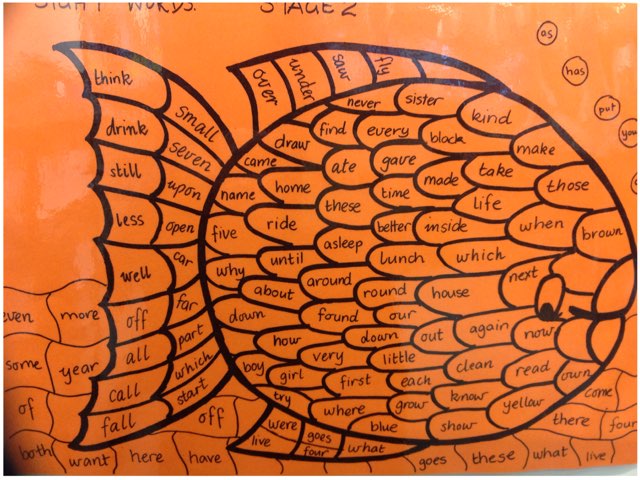 SIGHT WORDS. STAGE 2
as
has
put
you
over
under
saw
fly
think
drink
still
less
well
off
all
call
fall
small
seven
upon
open
car
far
part
which
start
never sister kind
draw find every black make
came ate gave made take those
name home these time life
five ride asleep better inside when brown
why until lunch which
about around round house next
down found our
how down out again now
boy girl very little clean read own
try first each know yellow
where grow
were blue show
live goes what
four
even more
some year
of off
both want here have
come
there four
goes these what live